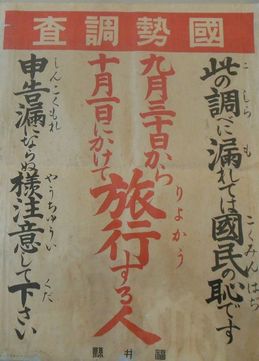 國勢調査
此の調べに漏れては國民の恥です
こ しら も こくみん はぢ
九月三十日から
十月一日にかけて
旅行する人
りょかう
申告漏にならぬ様注意して下さい
しんこくもれ やうちゅうい くだ
福井縣